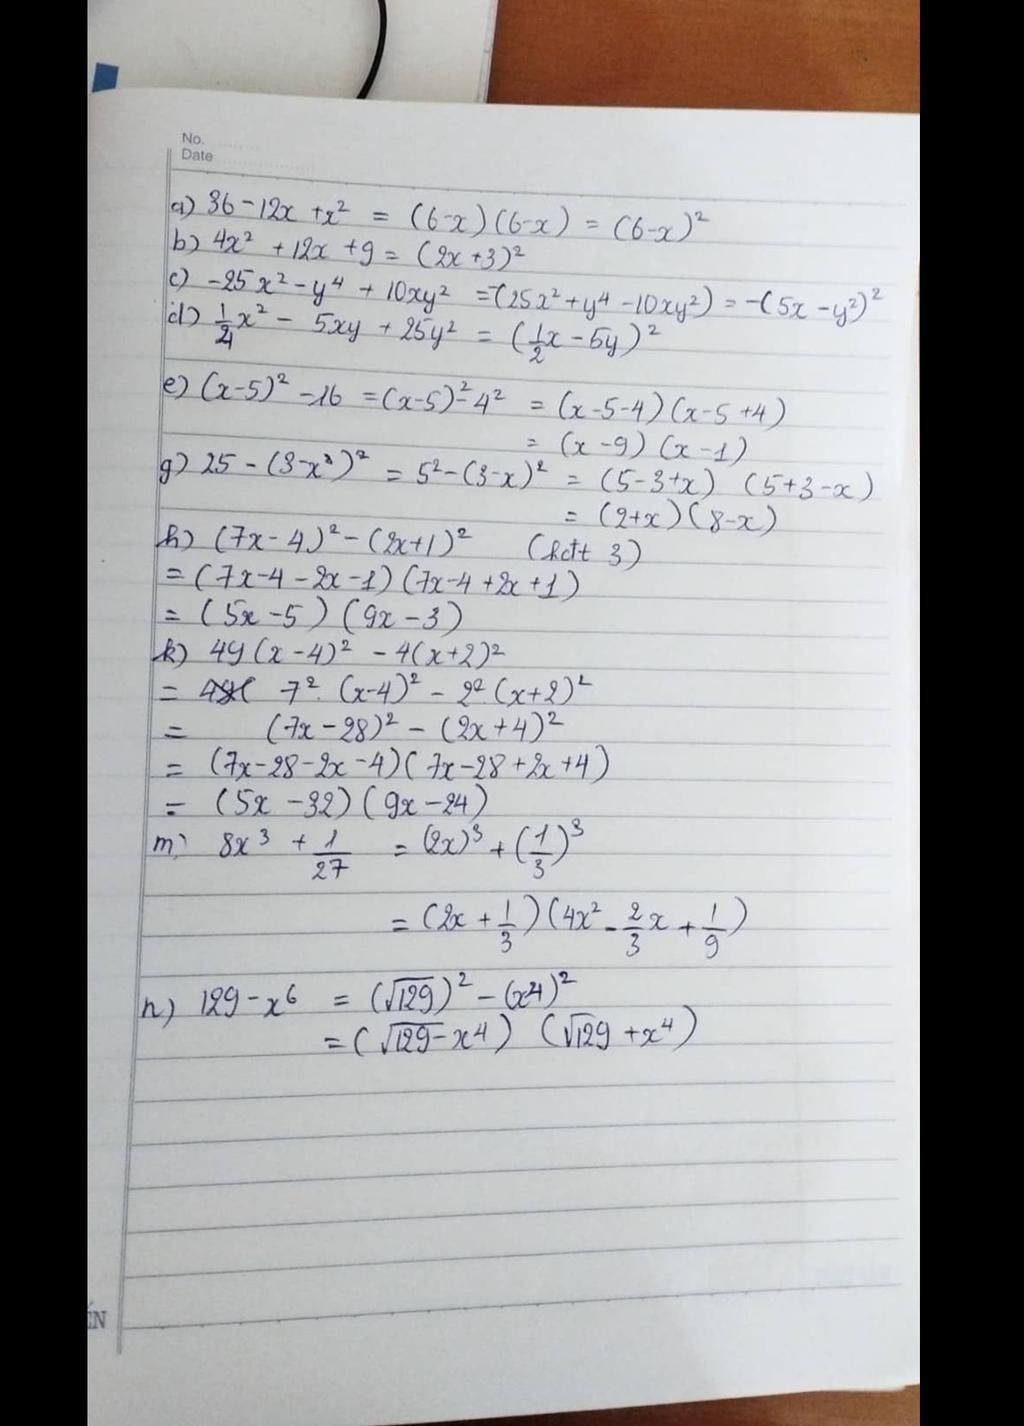 No.
Date
a) 36 - 12x + x² = (6-x)(6-x) = (6-x)²
b) 4x² + 12x + 9 = (2x+3)²
c) -25x² - y⁴ + 10xy² = -(25x² + y⁴ - 10xy²) = -(5x - y²)²
d) 1/4 x² - 5xy + 25y² = (1/2 x - 5y)²
e) (x-5)² - 16 = (x-5)² - 4² = (x-5-4)(x-5+4)
= (x-9)(x-1)
g) 25 - (3-x²)² = 5² - (3-x)² = (5-3+x) (5+3-x)
= (2+x)(8-x)
h) (7x-4)² - (2x+1)² (hđt 3)
= (7x-4-2x-1)(7x-4+2x+1)
= (5x-5)(9x-3)
k) 49(x-4)² - 4(x+2)²
= 7².(x-4)² - 2²(x+2)²
= (7x-28)² - (2x+4)²
= (7x-28-2x-4)(7x-28+2x+4)
= (5x-32)(9x-24)
m) 8x³ + 1/27 = (2x)³ + (1/3)³
= (2x + 1/3)(4x² - 2/3 x + 1/9)
n) 129 - x⁶ = (√129)² - (x⁴)²
= (√129 - x⁴) (√129 + x⁴)
ẾN